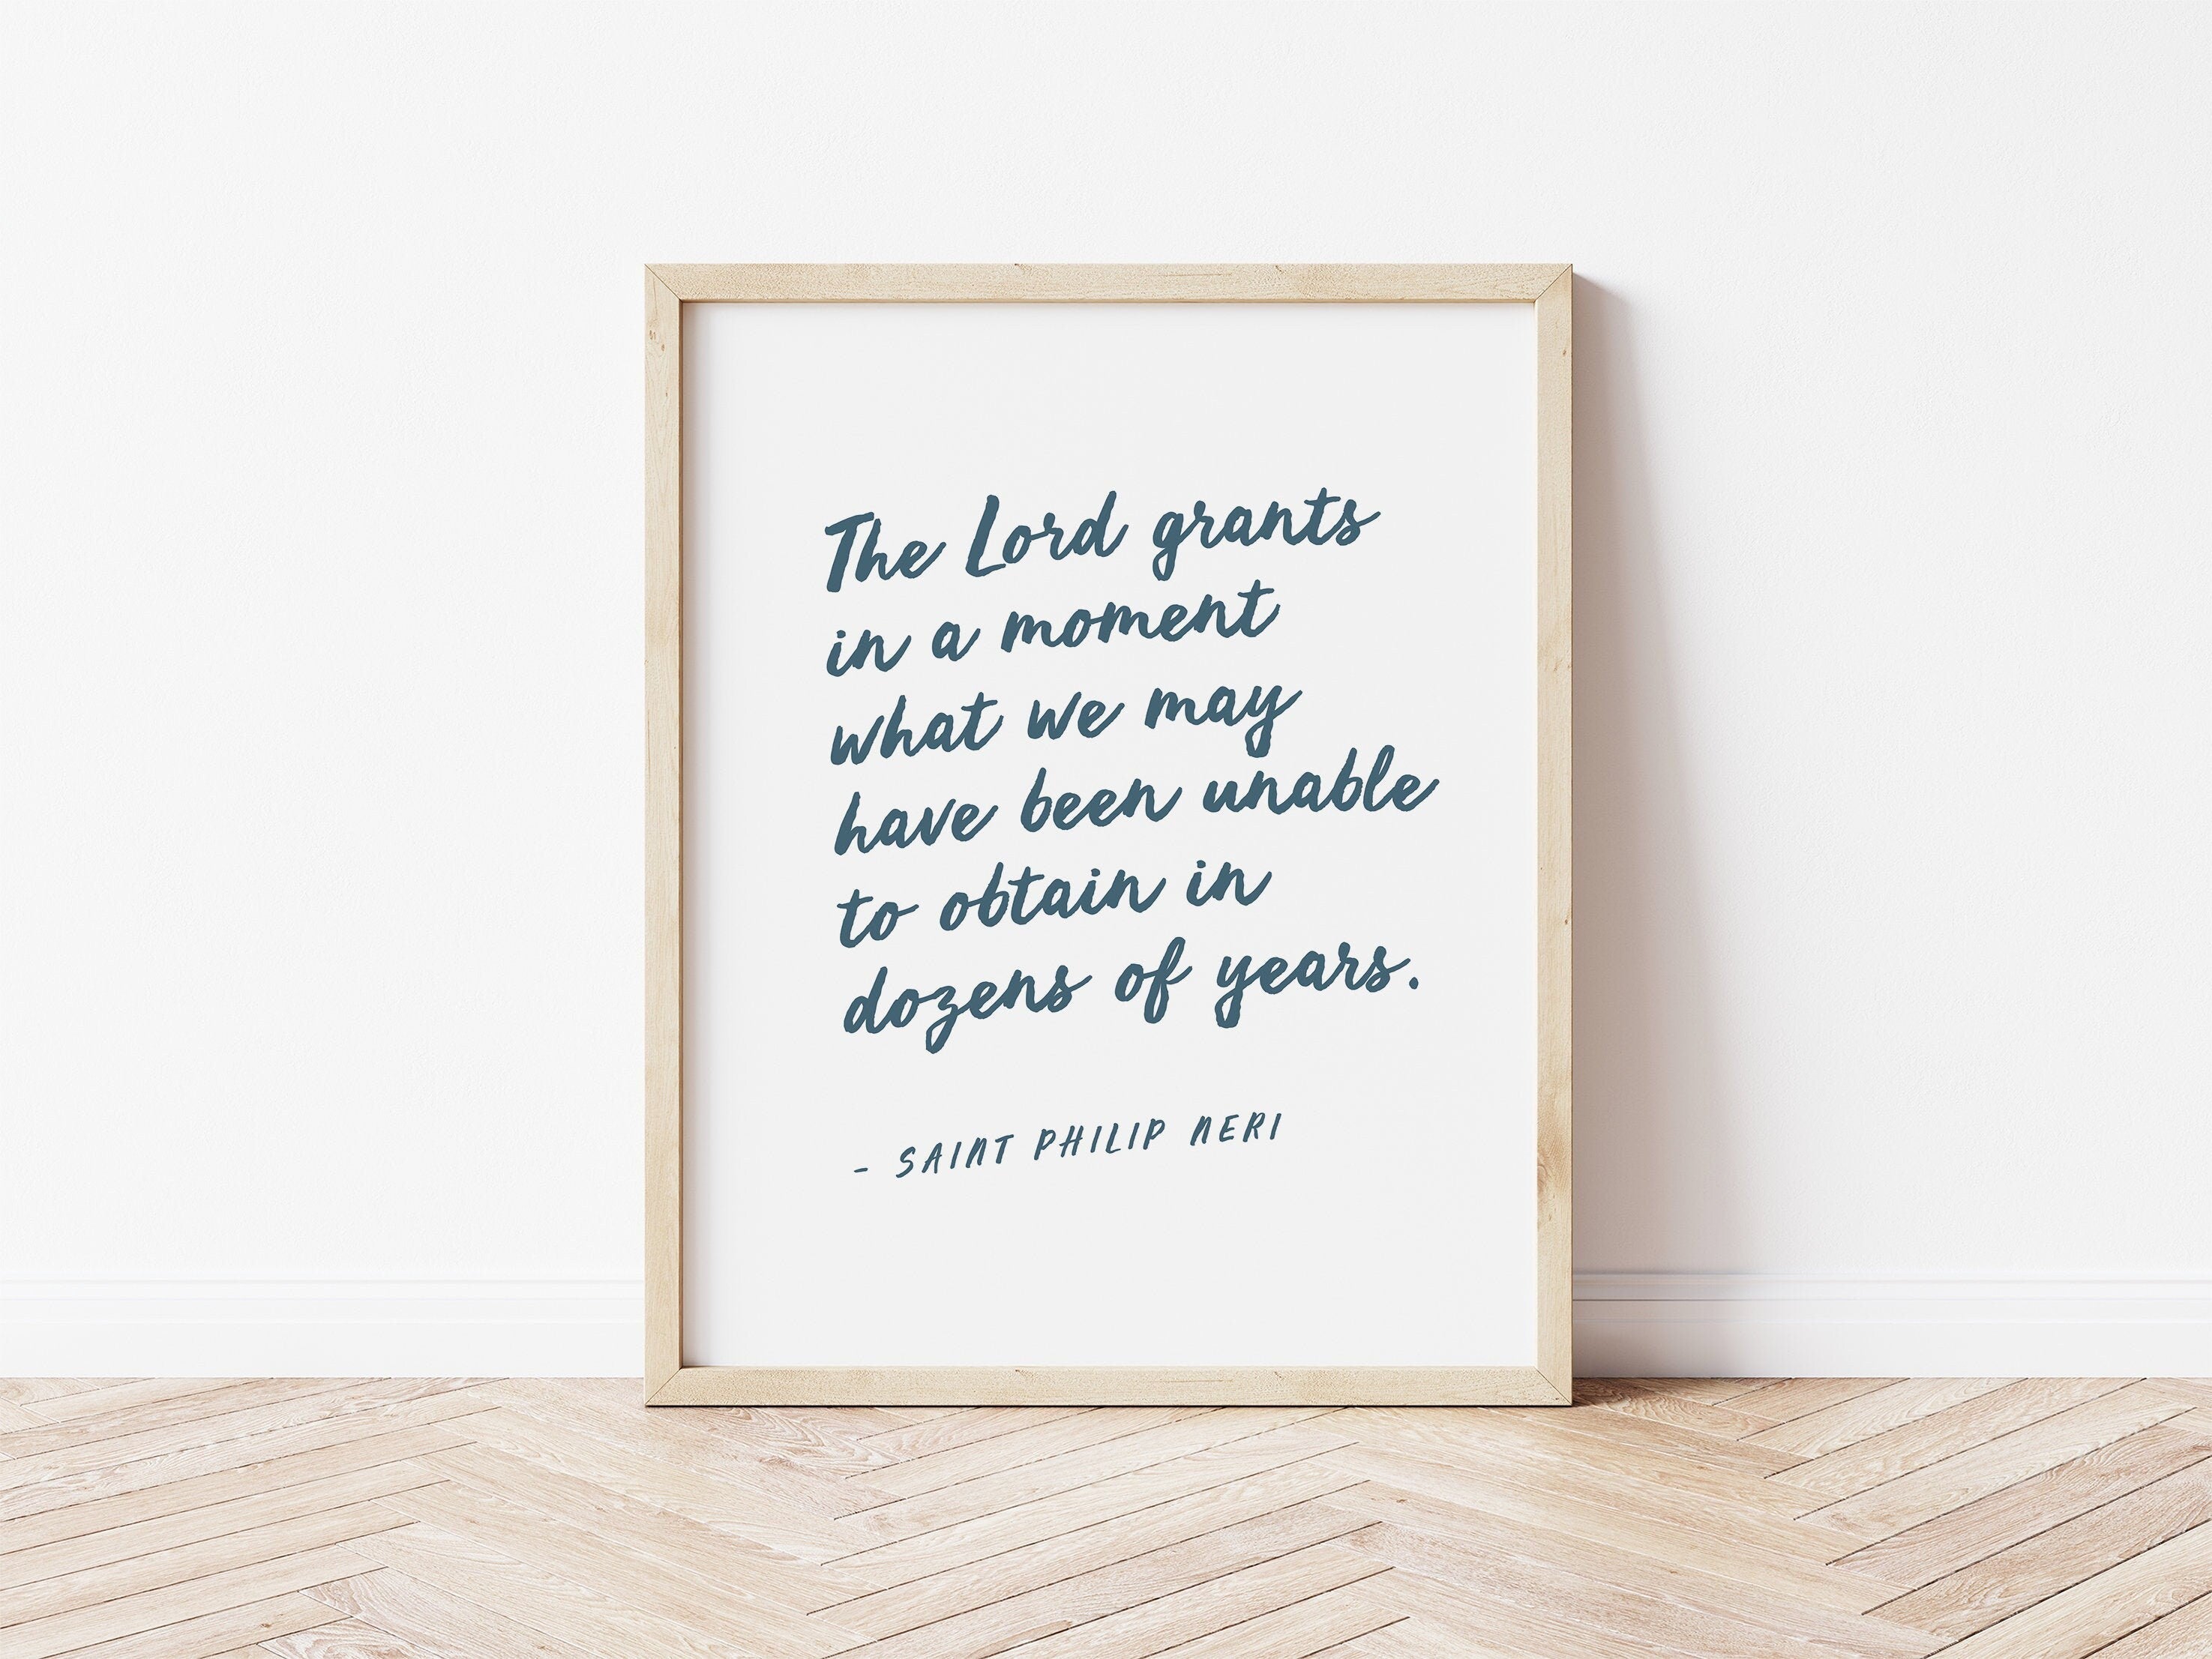 The Lord grants
in a moment
what we may
have been unable
to obtain in
dozens of years.
- SAINT PHILIP NERI